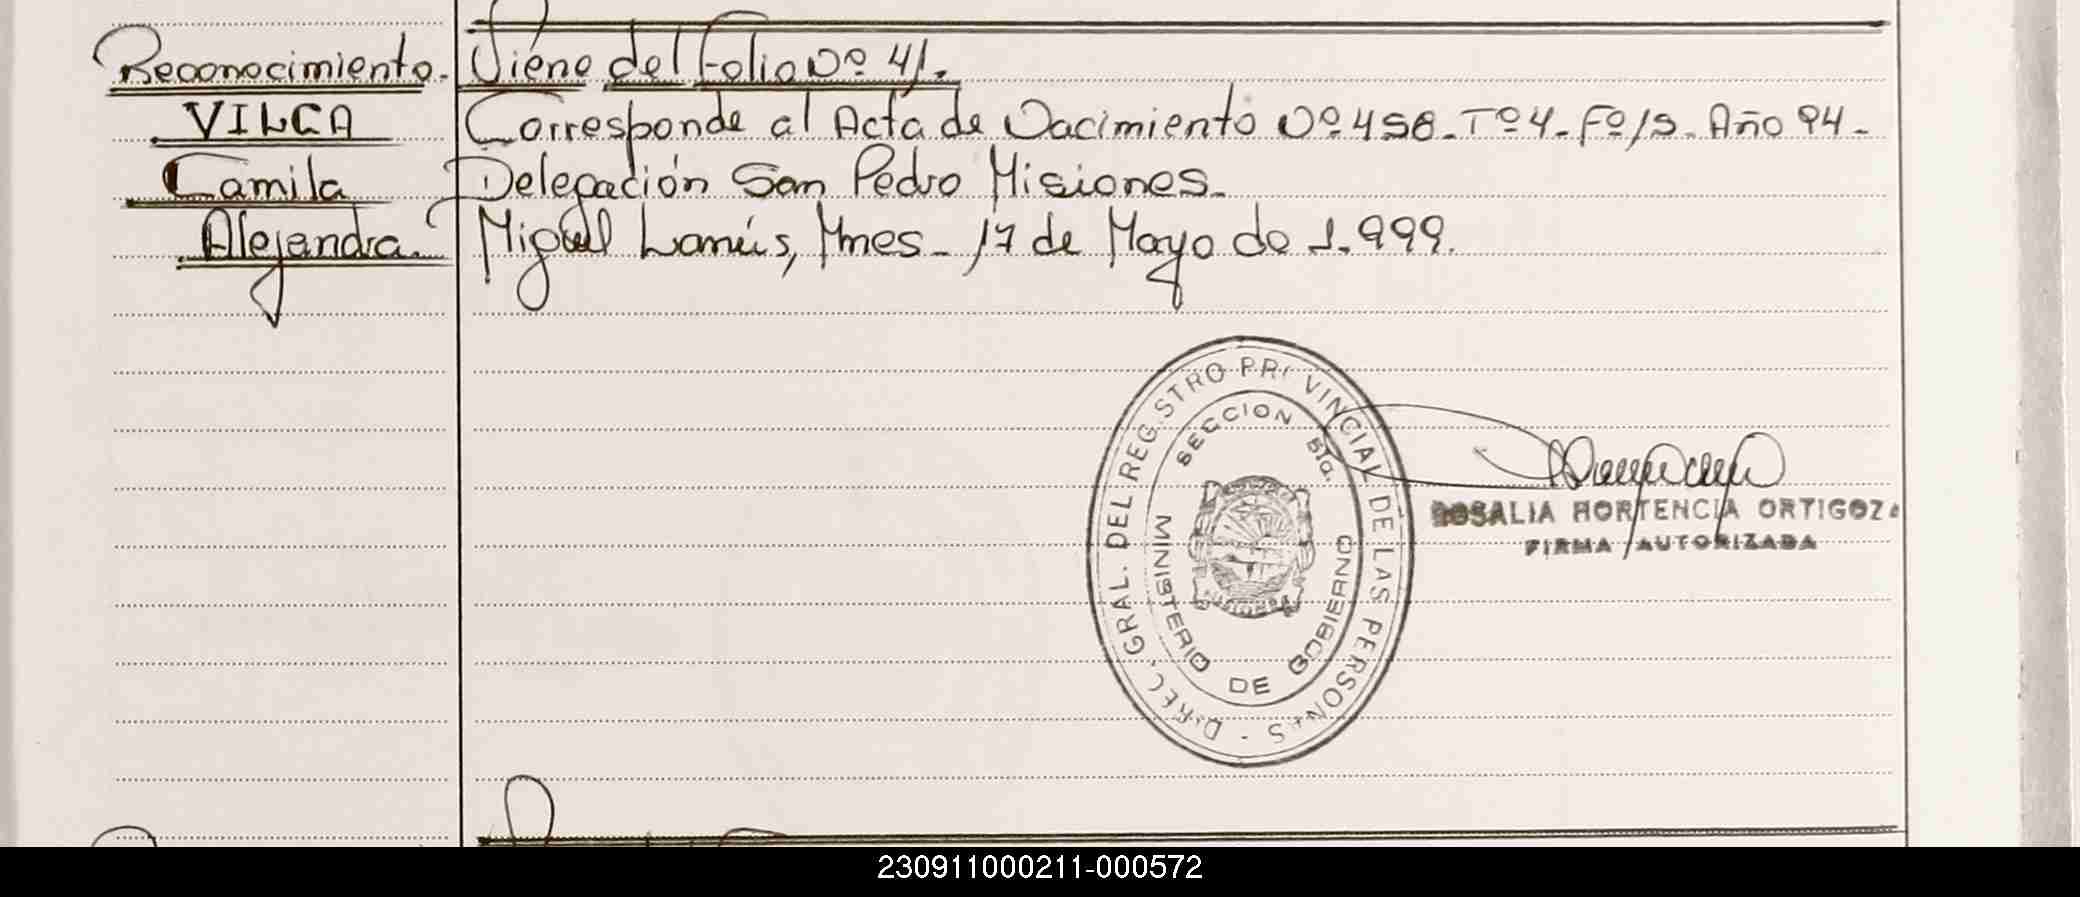 Reconocimiento. Viene del Folio Nº 41.
VILCA Corresponde al Acta de Nacimiento Nº 458. Tº 4. Fº 15. Año 94.
Camila Delegación San Pedro Misiones.
Alejandra. Miguel Lanús, Mnes. 17 de Mayo de 1.999.
DIREC. GRAL. DEL REGISTRO PROVINCIAL DE LAS PERSONAS
SECCION 5ta.
MINISTERIO DE GOBIERNO
ROSALIA HORTENCIA ORTIGOZA
FIRMA AUTORIZADA
230911000211-000572